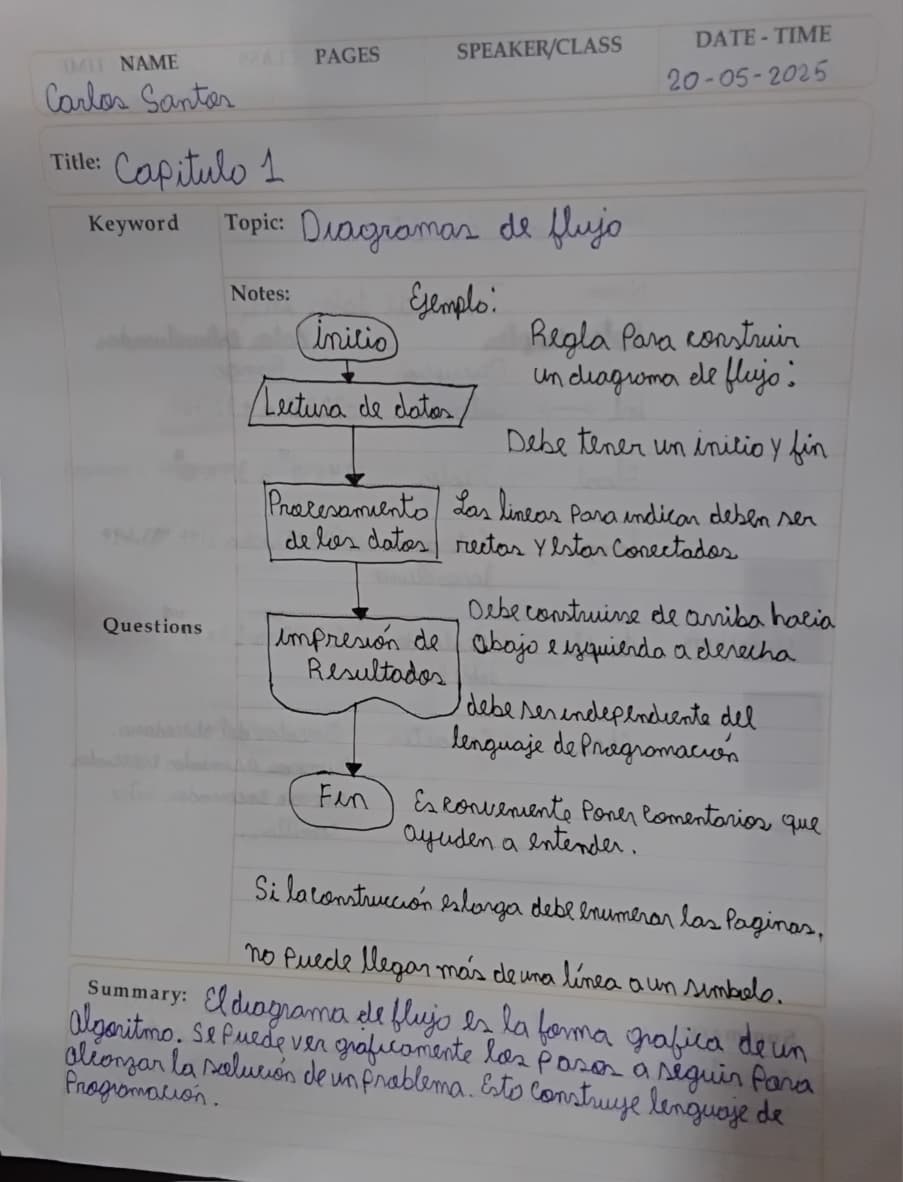 NAME PAGES SPEAKER/CLASS DATE - TIME
Carlos Santos 20-05-2025
Title: Capitulo 1
Keyword Topic: Diagramas de flujo
Notes: Ejemplo:
inicio
Lectura de datos
Procesamiento
de los datos
impresión de
Resultados
Fin
Regla Para construir
un diagrama de flujo:
Debe tener un inicio y fin
Las lineas Para indicar deben ser
rectas y estar conectados
Debe construirse de arriba hacia
abajo e izquierda a derecha
debe ser independiente del
lenguaje de Programación
Es conveniente Poner comentarios que
ayuden a entender.
Si la construcción es larga debe enumerar las Paginas,
no Puede llegar más de una línea a un simbolo.
Questions
Summary: El diagrama de flujo es la forma grafica de un
algoritmo. Se Puede ver graficamente los pasos a seguir Para
alcanzar la solución de un Problema. Esto construye lenguaje de
Programación.